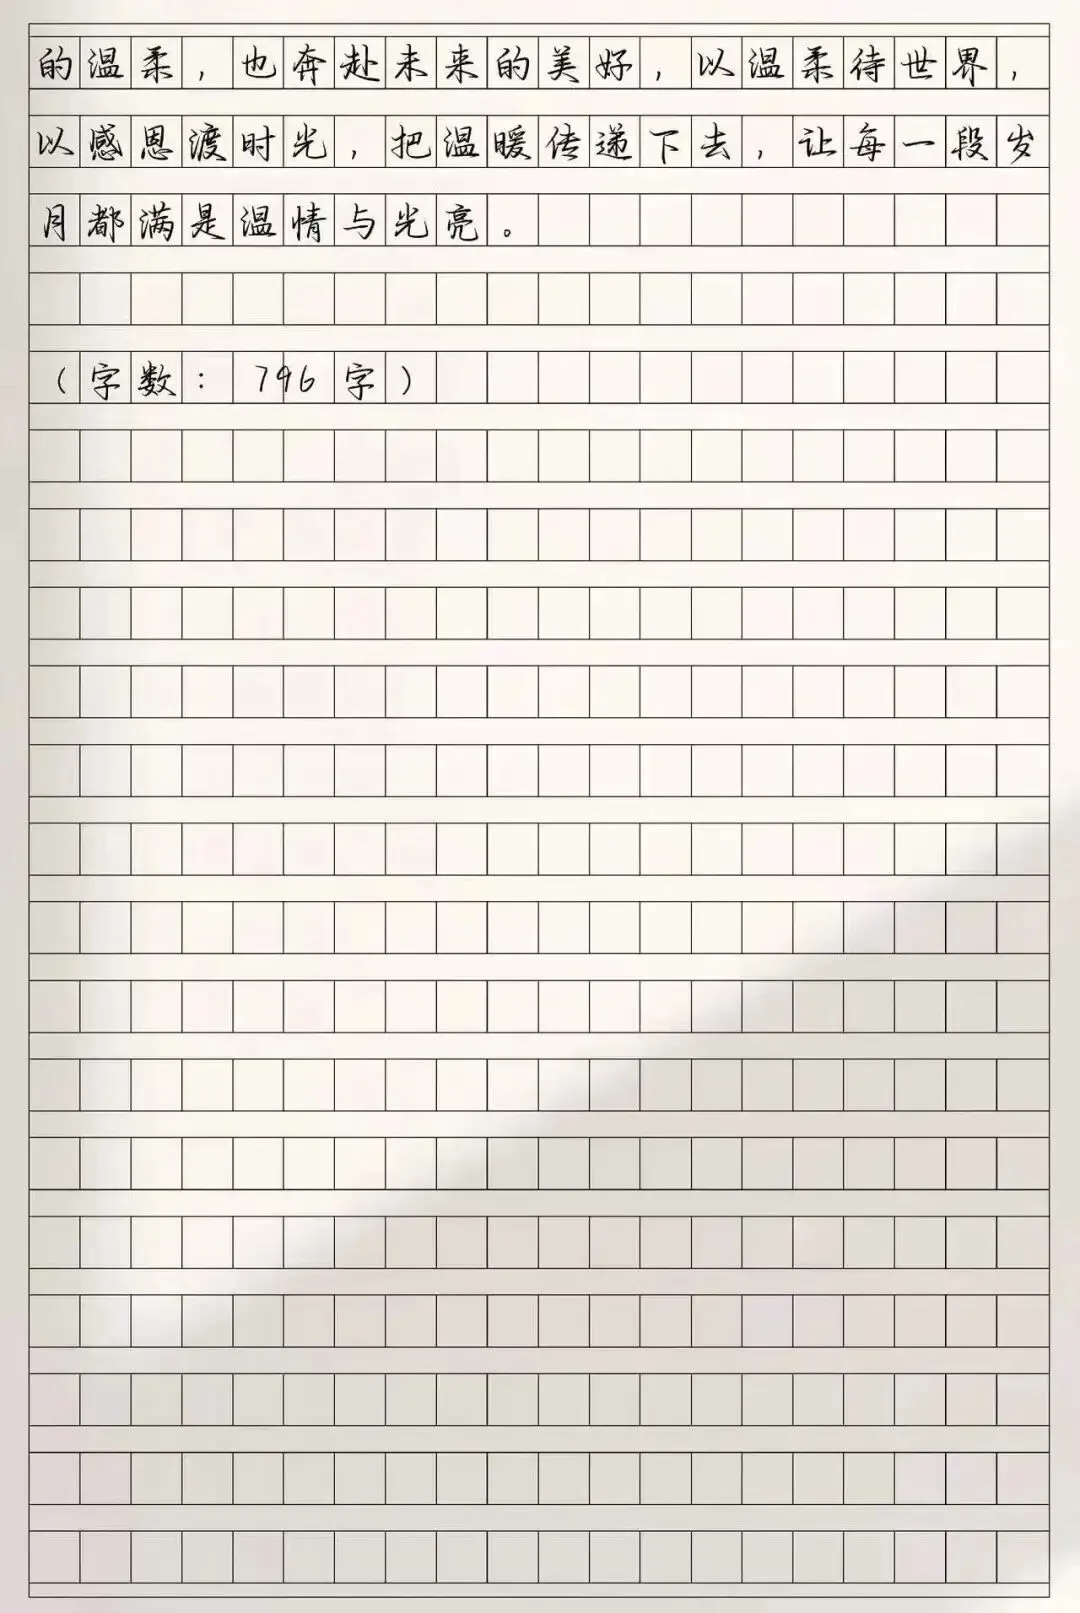 的温柔，也奔赴未来的美好，以温柔待世界，
以感恩渡时光，把温暖传递下去，让每一段岁
月都满是温情与光亮。
（字数：796字）